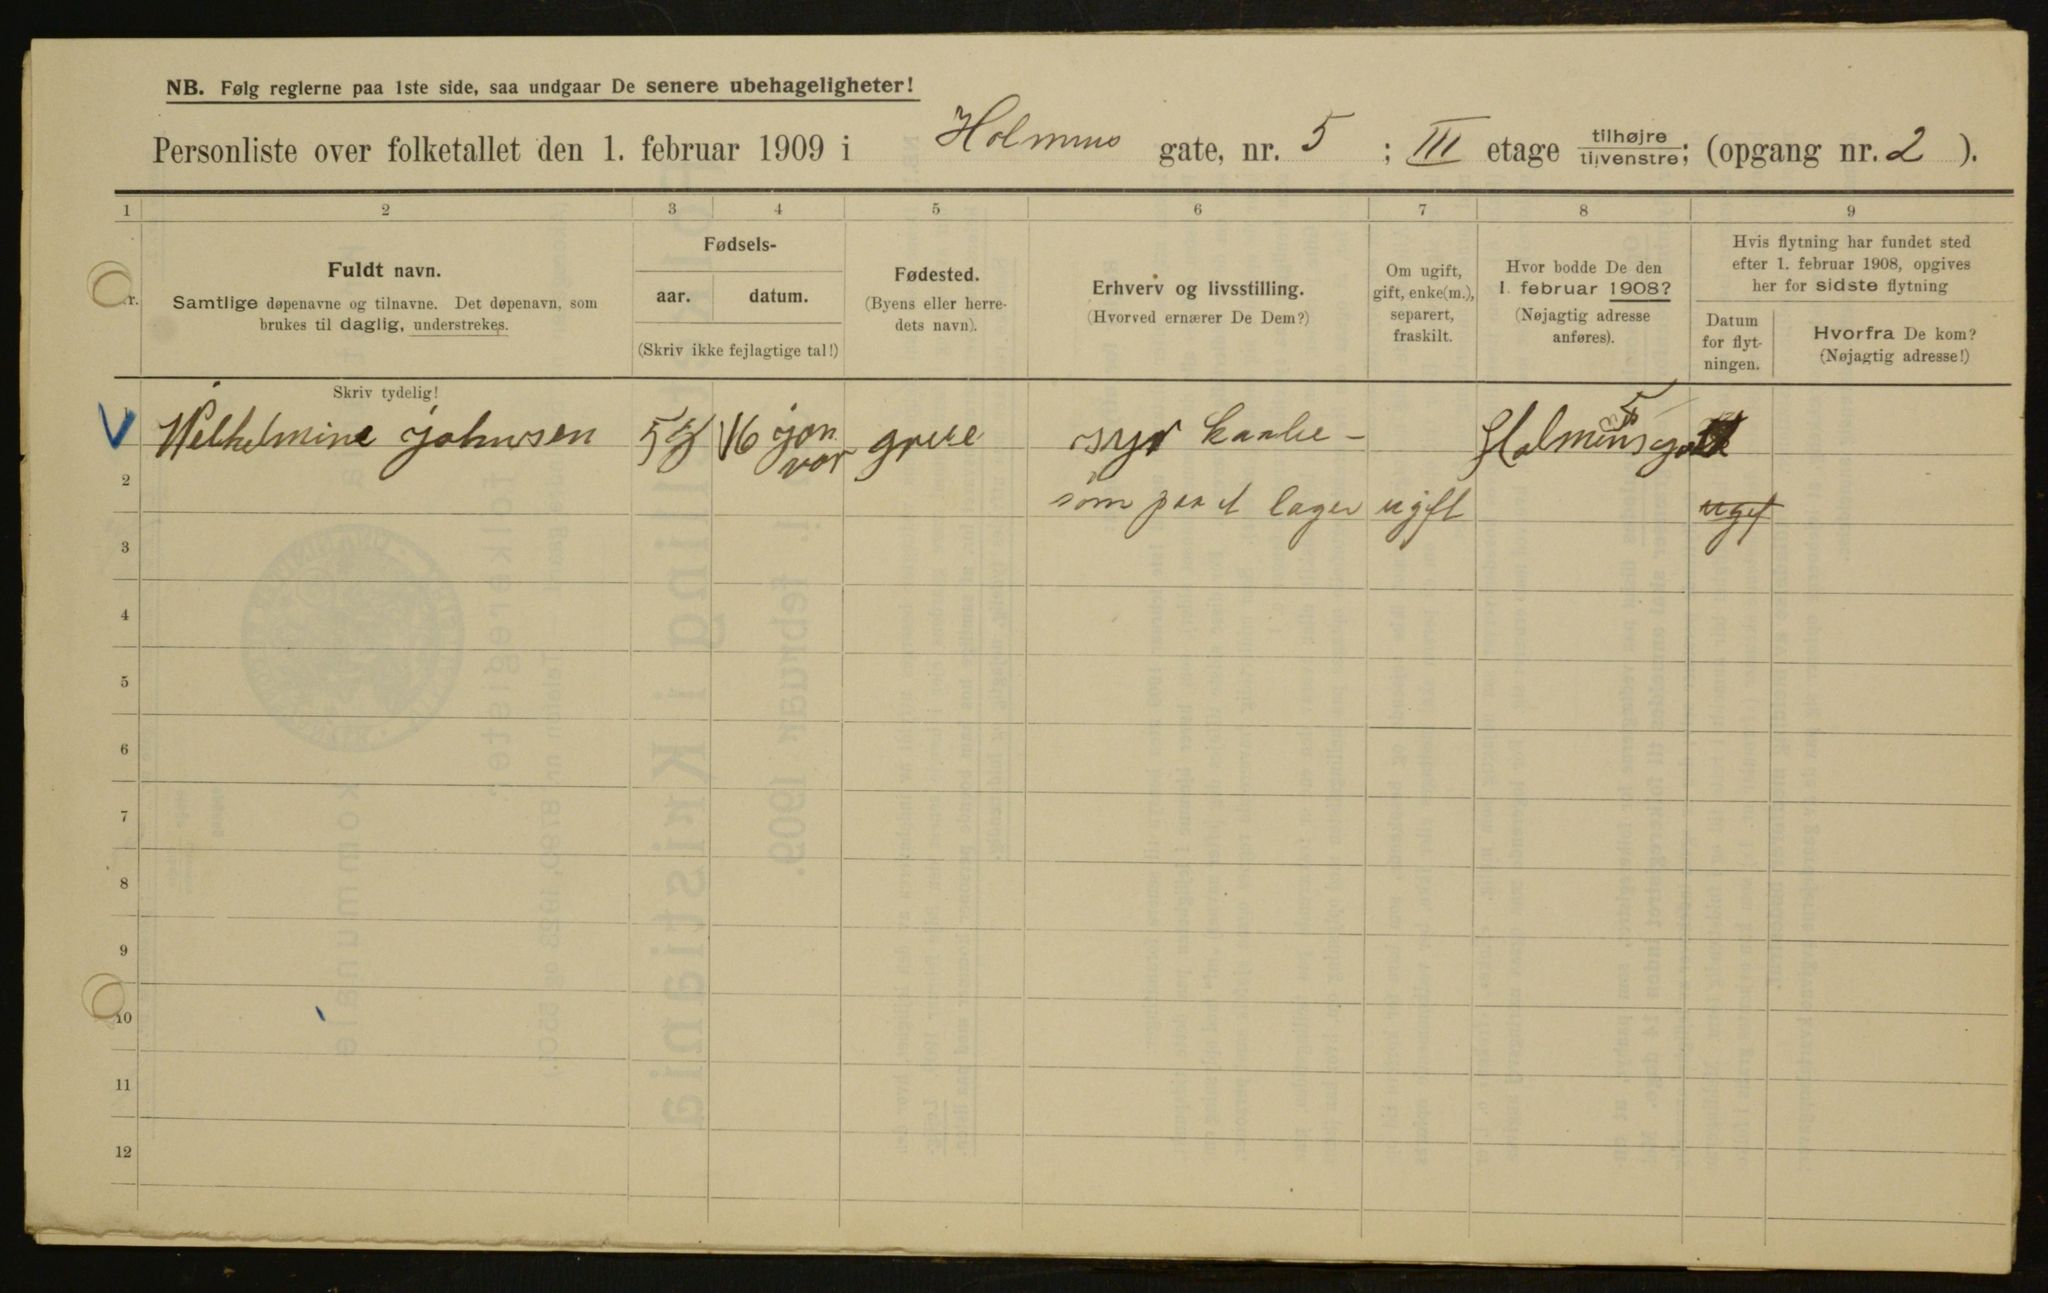 NB. Følg reglerne paa 1ste side, saa undgaar De senere ubehageligheter!
Personliste over folketallet den 1. februar 1909 i Holmens gate, nr. 5 ; III etage tilhøjre tilvenstre; (opgang nr. 2 ).
1 2 3 4 5 6 7 8 9
Nr.
Fuldt navn.
Samtlige døpenavne og tilnavne. Det døpenavn, som
brukes til daglig, understrekes.
Fødsels-
aar. datum.
(Skriv ikke fejlagtige tal!)
Fødested.
(Byens eller herre-
dets navn).
Erhverv og livsstilling.
(Hvorved ernærer De Dem?)
Om ugift,
gift, enke(m.),
separert,
fraskilt.
Hvor bodde De den
1. februar 1908?
(Nøjagtig adresse
anføres).
Hvis flytning har fundet sted
efter 1. februar 1908, opgives
her for sidste flytning
Datum
for flyt-
ningen.
Hvorfra De kom?
(Nøjagtig adresse!)
Skriv tydelig!
1 Wilhelmine Johnsen 16 jan
var syr kaabe - Holmensgate 5
2 som paa et lager ugift ugif
3
4
5
6
7
8
9
10
11
12